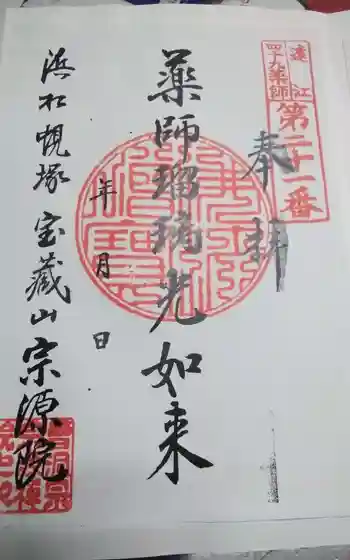 遠江
四十九薬師
第二十一番
奉拝
薬師瑠璃光如来
年月日
浜松幌塚宝蔵山宗源院